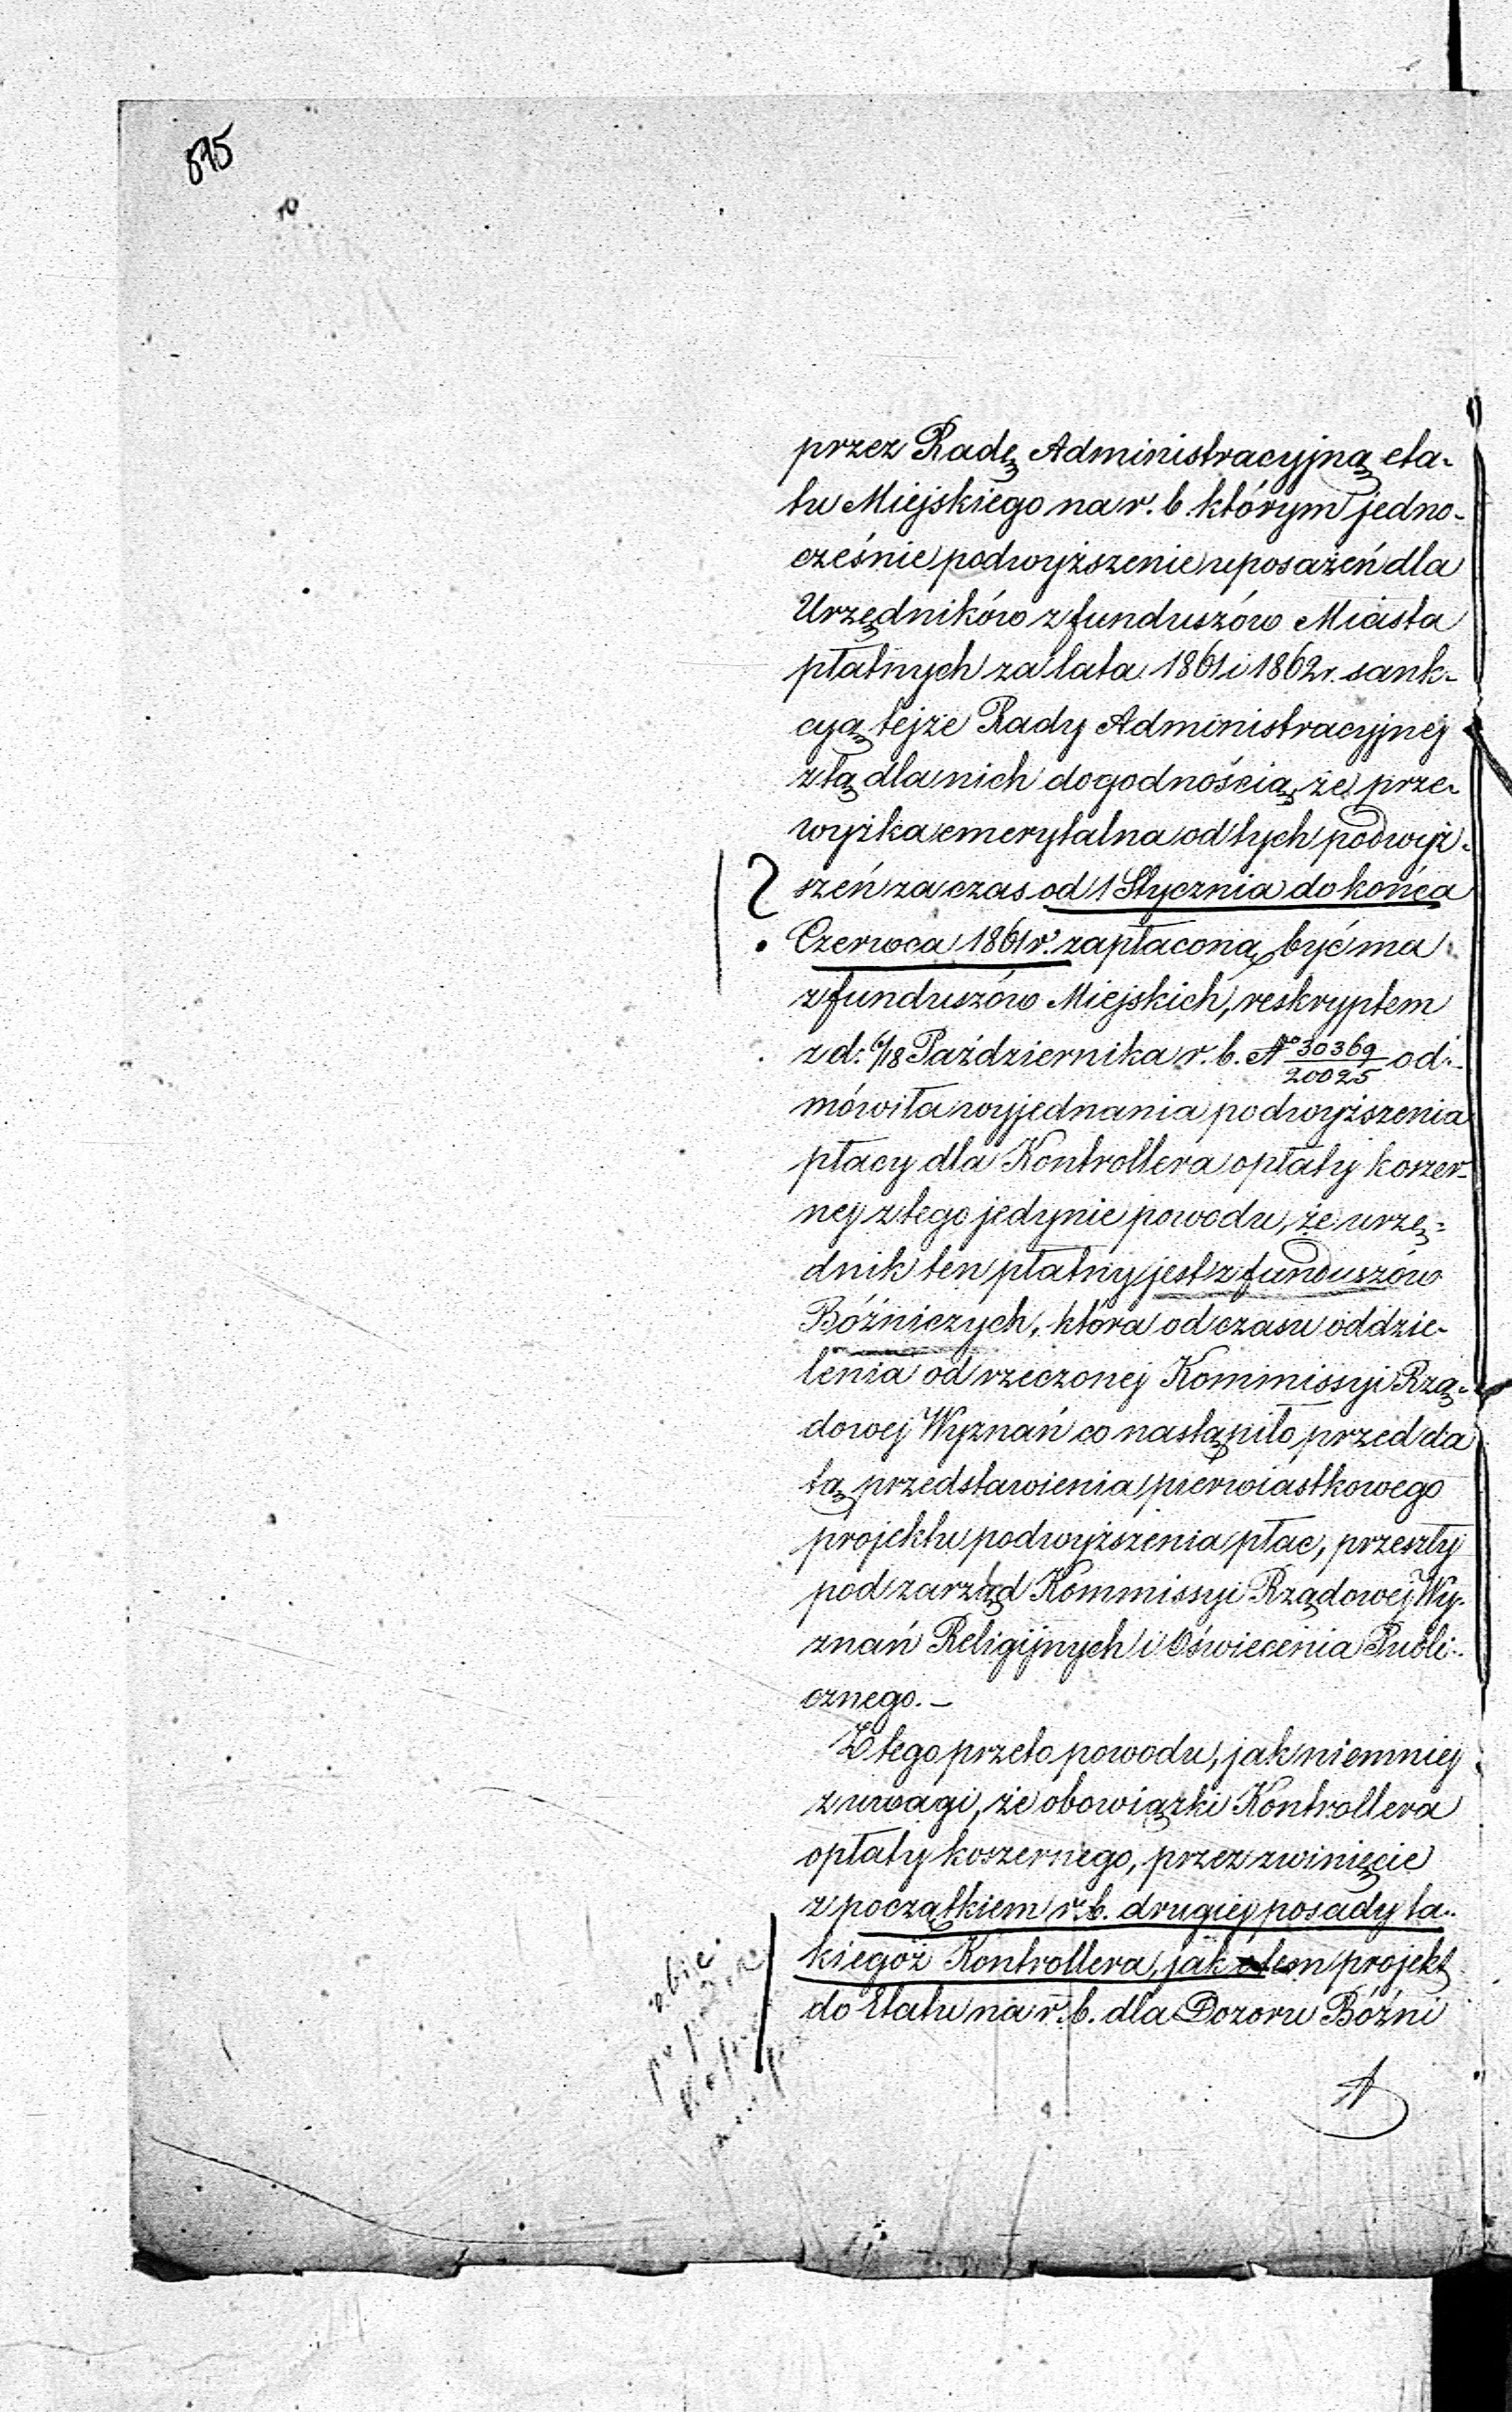 895
przez Radę Administracyjną eta-
tu Miejskiego na r. b. którym jedno-
cześnie podwyższenie uposażeń dla
Urzędników z funduszów Miasta
płatnych za lata 1861 i 1862 r. sank-
cyą tejże Rady Administracyjnej
z tą dla nich dogodnością, że prze-
wyżka emerytalna od tych podwyż-
szeń za czas od 1 Stycznia do końca
Czerwca 1861 r. zapłaconą być ma
z funduszów Miejskich, reskryptem
z d. 6/18 Października r. b. No 30369/20025 od-
mówiła wyjednania podwyższenia
płacy dla Kontrollera opłaty koszer-
nej z tego jedynie powodu, że urzę-
dnik ten płatny jest z funduszów
Bóźniczych, która od czasu oddzie-
lenia od rzeczonej Kommissyi Rzą-
dowej Wyznań co nastąpiło przed da
tą przedstawienia pierwiastkowego
projektu podwyższenia płac, przeszły
pod zarząd Kommissyi Rządowej Wy-
znań Religijnych i Oświecenia Publi-
cznego. —
Z tego przeto powodu, jak niemniej
z uwagi, że obowiązki Kontrollera
opłaty koszernego, przez zwinięcie
z początkiem r. b. drugiej posady ta-
kiegoż Kontrollera, jak o tem projekt
do Etatu na r. b. dla Dozoru Bóźni